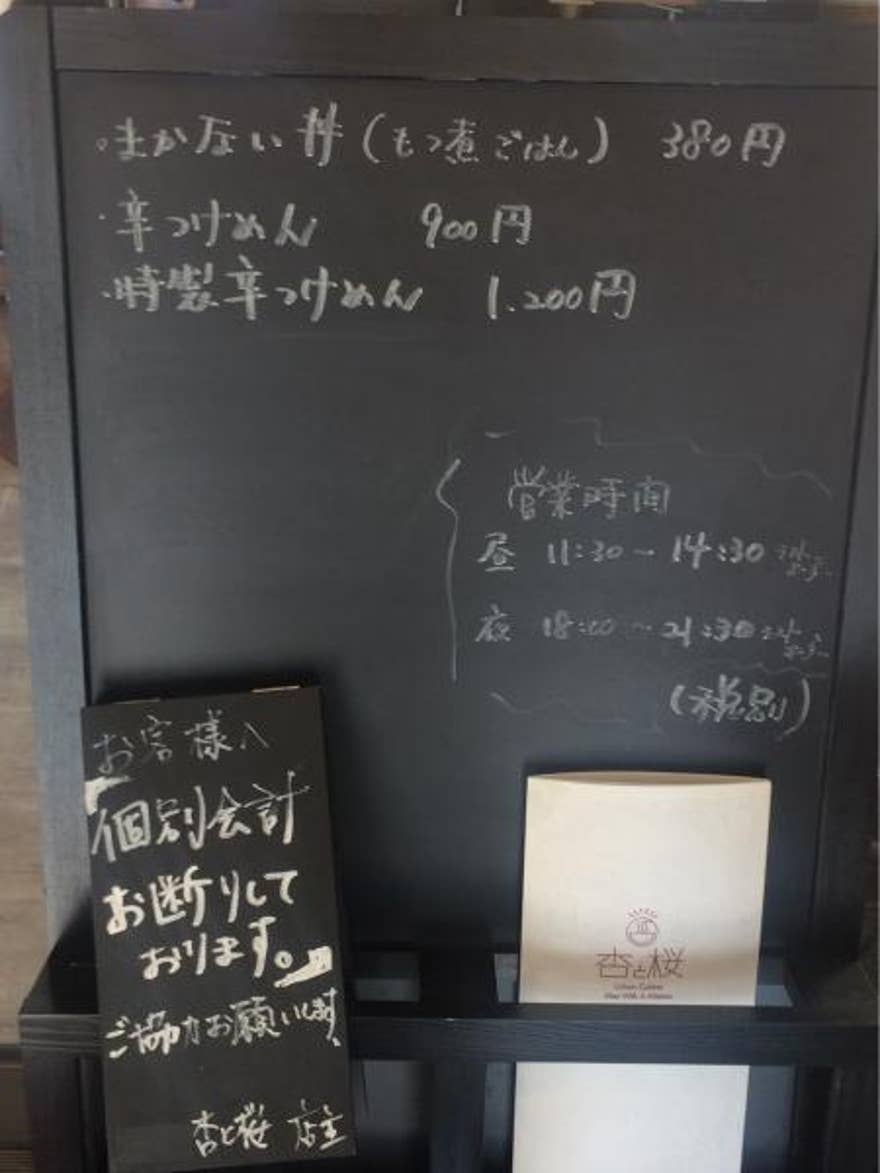 ・まかない丼(もつ煮ごはん) 380円
・辛つけめん 900円
・特製辛つけめん 1.200円
営業時間
昼 11:30〜14:30
夜 18:00〜21:30
(税別)
お客様へ
個別会計
お断りして
おります。
ご協力お願いします
杏と桜 店主
杏と桜